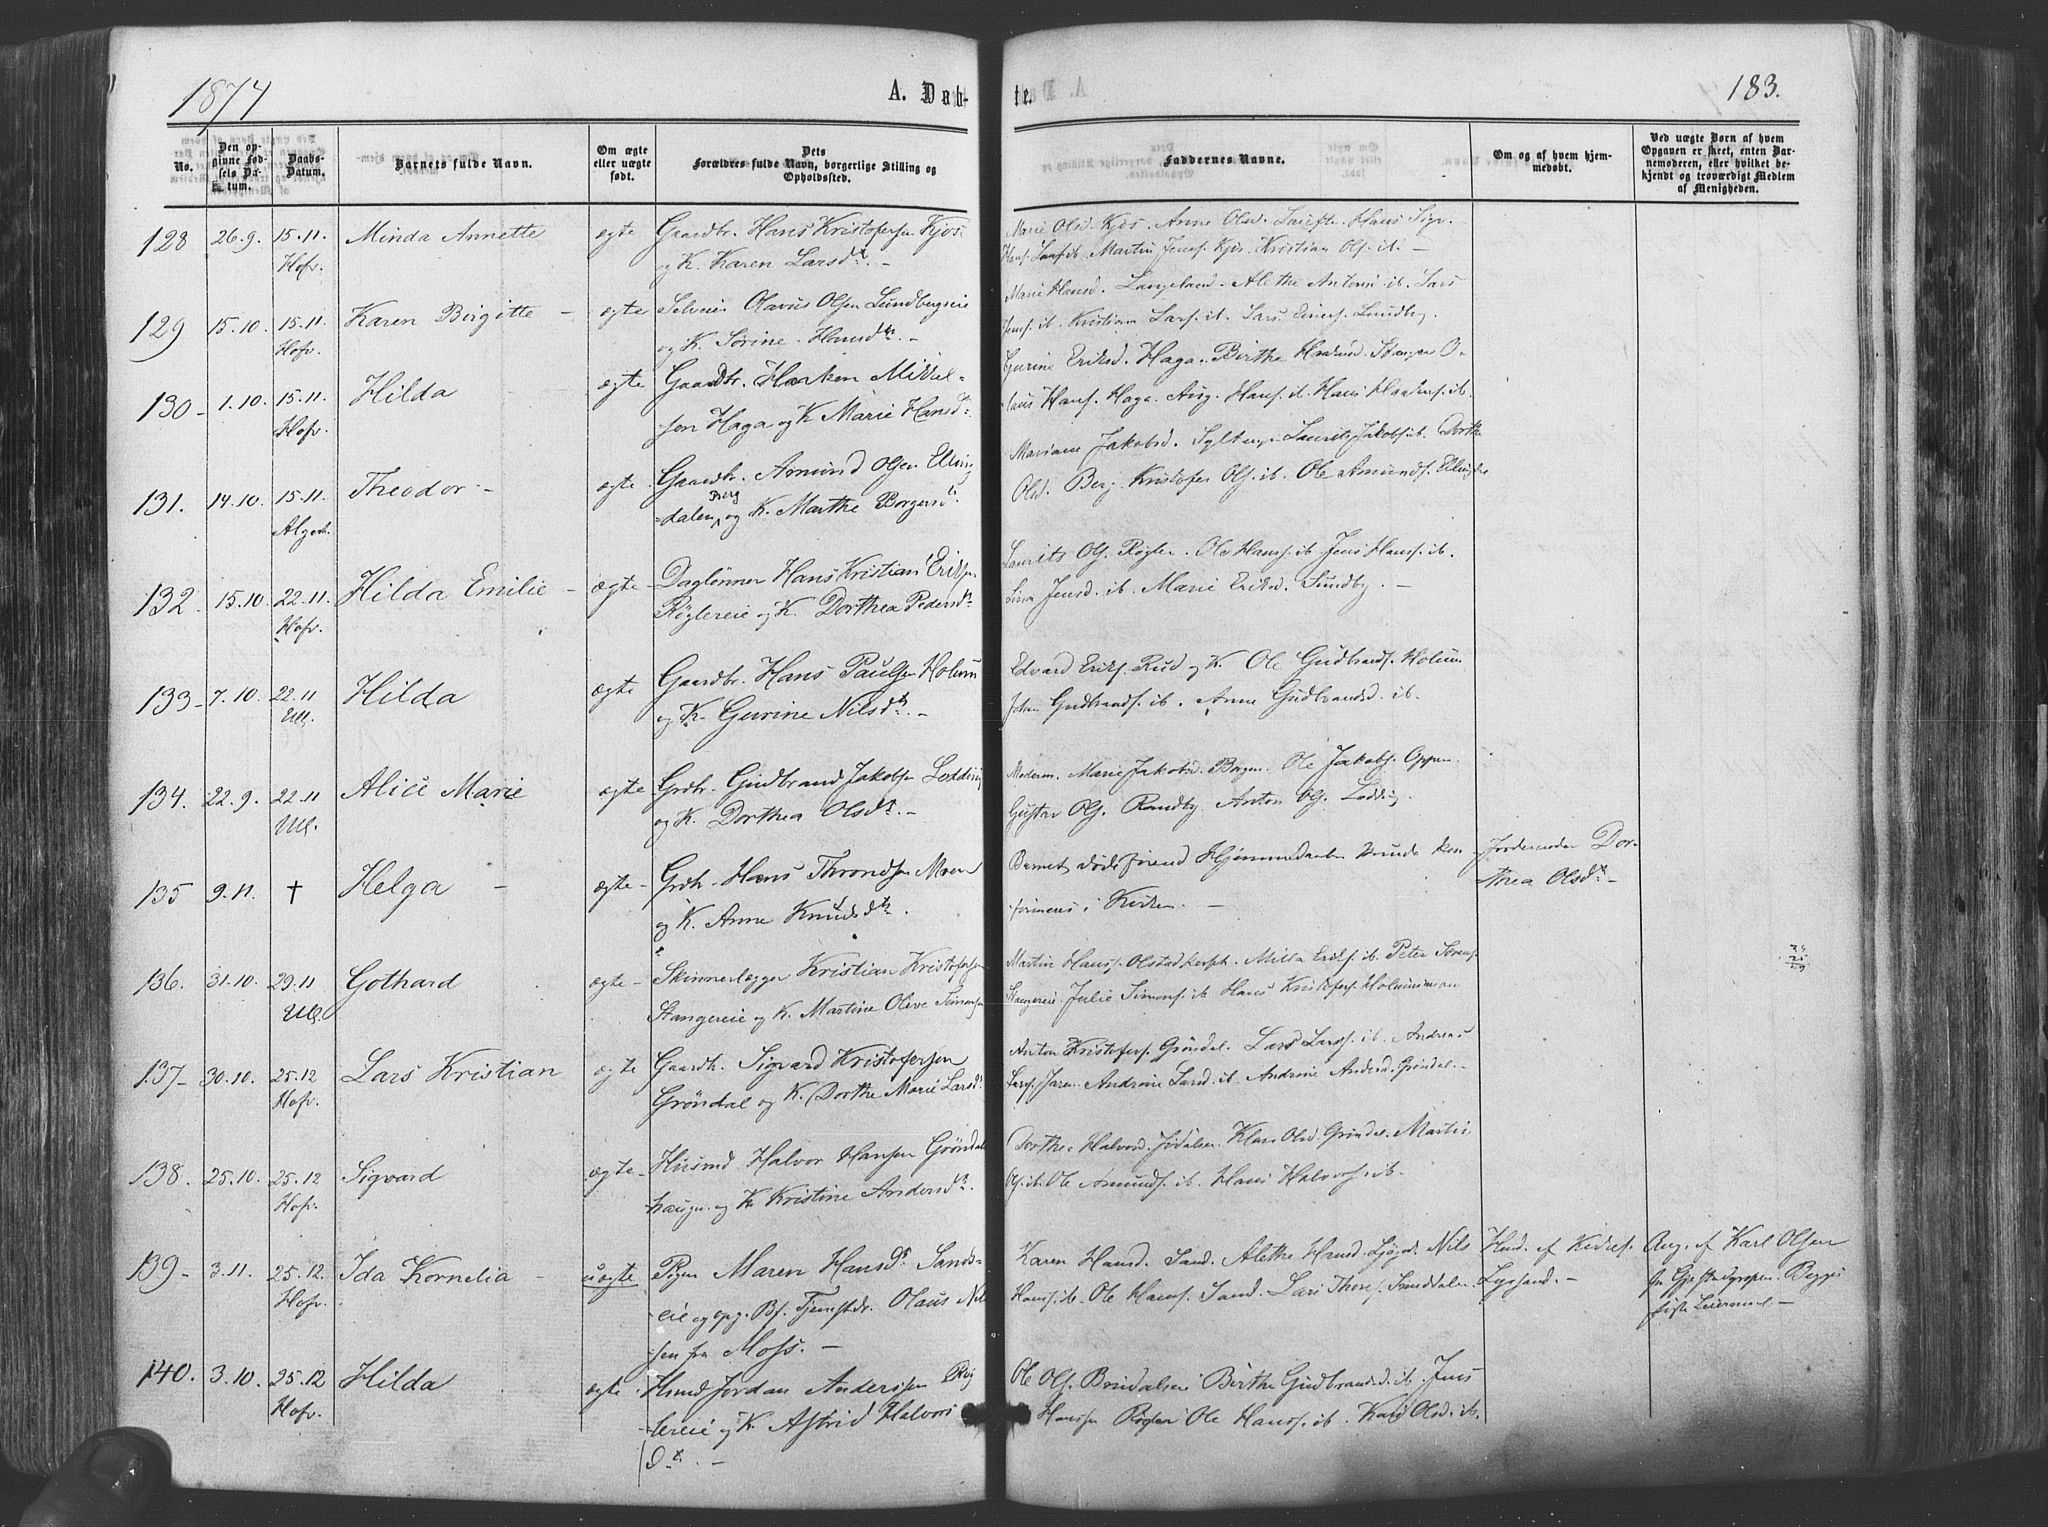 1874
A. Døb-
te.
183.
No.
Den op-
givne Fød-
sels Da-
tum.
Daabs-
Datum.
Barnets fulde Navn.
Om ægte
eller uægte
født.
Dets
Forældres fulde Navn, borgerlige Stilling og
Opholdssted.
Faddernes Navne.
Om og af hvem hjem-
medøbt.
Ved uægte Børn af hvem
Opgaven er skeet, enten Bar-
nemoderen, eller hvilket be-
kjendt og troværdigt Medlem
af Menigheden.
128 26.9. 15.11. Minda Annette ægte Gaardbr. Hans Kristofersen Kjos
Hofv. og K. Karen Larsdtr. -
Marie Olsd. Kjos. Anne Olsd. Hans Sigv.
Hans. Lars. ib. Martin Jens. Kjos. Kristian Ols. ib. -
129 15.10. 15.11. Karen Birgitte - ægte Selveier Olavus Olsen Lundbergseie
Hofv. og K. Sørine Hansdtr. -
Marie Hansd. Langeland. Alethe Anton. ib. Lars
Jens. ib. Kristian Lars. ib. Lars Einers. Lundby.
130 - 1.10. 15.11. Hilda ægte Gaardbr. Haaken Mikkel-
Hofv. sen Haga og K. Marie Hansdtr
Gurine Eriksd. Haga. Birthe Haakens. Stangen O-
laus Hans. Haga. Aug. Hans. ib. Hans Haakens. ib.
131. 14.10. 15.11. Theodor - ægte Gaardbr. Amund Olsen Elling
Algarh. dalen Berg og K. Marthe Borgersdtr.
Mariane Jakobsd. Sylt Laurits Jakobs. ib. Dorthe
Olsd. Berg. Kristofer Ols. ib. Ole Amunds. Ellingdal
132 - 15.10. 22.11. Hilda Emilie - ægte Daglønner Hans Kristian Eriksen
Hofv. Røglereie og K. Dorthea Pedersdtr
Laurits Ols. Røgler. Ole Hans. ib. Jens Hans. ib.
Lina Jensd. ib. Marie Eriksd. Sundby. -
133 - 7.10. 22.11 Hilda ægte Gaardbr. Hans Paulsen Holum
Ull. og K. Gurine Nilsdtr. -
Edvard Eriks. Rud og K. Ole Gudbrands. Holum
Johan Gudbrands. ib. Anne Gudbrandsd. ib.
134. 22.9. 22.11 Alice Marie ægte Grdbr. Gudbrand Jakobsen Lodding
Ull. og K. Dorthea Olsdtr. -
Moderen. Marie Jakobsd. Borgen. Ole Jakobs. Oppen.
Gustav Ols. Randby. Anton Ols. Lodding.
135 9.11. † Helga - ægte - Grdbr. Hans Throndsen Moen
og K. Anne Knudsdtr.
Barnet døde førend Hjemmedaaben kunde kon-
firmeres i Kirken. -
Jordemoder Dor-
thea Olsdtr. -
136. 31.10. 29.11 Gothard ægte - Skinnerlægger Kristian Kristofersen
Ull. Stangereie og K. Martine Oleve Simonsd
Martine Hans. Olstad Milla Eriks. ib. Peter Sørens.
Stangereie. Julie Simons. ib. Hans Kristofers. Holum
137 - 30.10. 25.12 Lars Kristian ægte Gaardbr. Sigvard Kristofersen
Hofv. Grøndal og K. Dorthe Marie Larsdtr.
Anton Kristofers. Grøndal. Lars Lars. ib. Andreas
Lars. Jaren. Andrine Larsd. ib. Andrine Andersd. Grøndal. -
138. 25.10. 25.12 Sigvard ægte - Husmd Halvor Hansen Grøndal
Hofv. haugen og K. Kristine Andersdtr.
Dorthea Halvord. Jødalseie. Klara Olsd. Grøndal. Martin
Ols. ib. Ole Amunds. ib. Hans Halvors. ib.
139 - 3.11. 25.12. Ida Kornelia - uægte Pigen Maren Hansdtr. Sands-
Hofv. eie og opg. Bf. Tjenestdr. Olaus Nil-
sen fra Moss. -
Karen Hansd. Sand. Alethe Hansd. Nils
Hans. ib. Ole Hans. Sand. Lars Thores. Smeddalen.
Hmd. af Kirkes.
Lygsand. -
Ang. af Karl Olsen
fra Begges
første Leiermaal -
140. 3.10. 25.12 Hilda ægte Hsmd Jordan Andersen Røg
Hofv. lereie og K. Astrid Halvors
dtr. -
Ole Ols. Brudalseie Birthe Gudbrandsd. ib. Jens
Hansen Røgler Ole Hans. ib. Kari Olsd. ib.